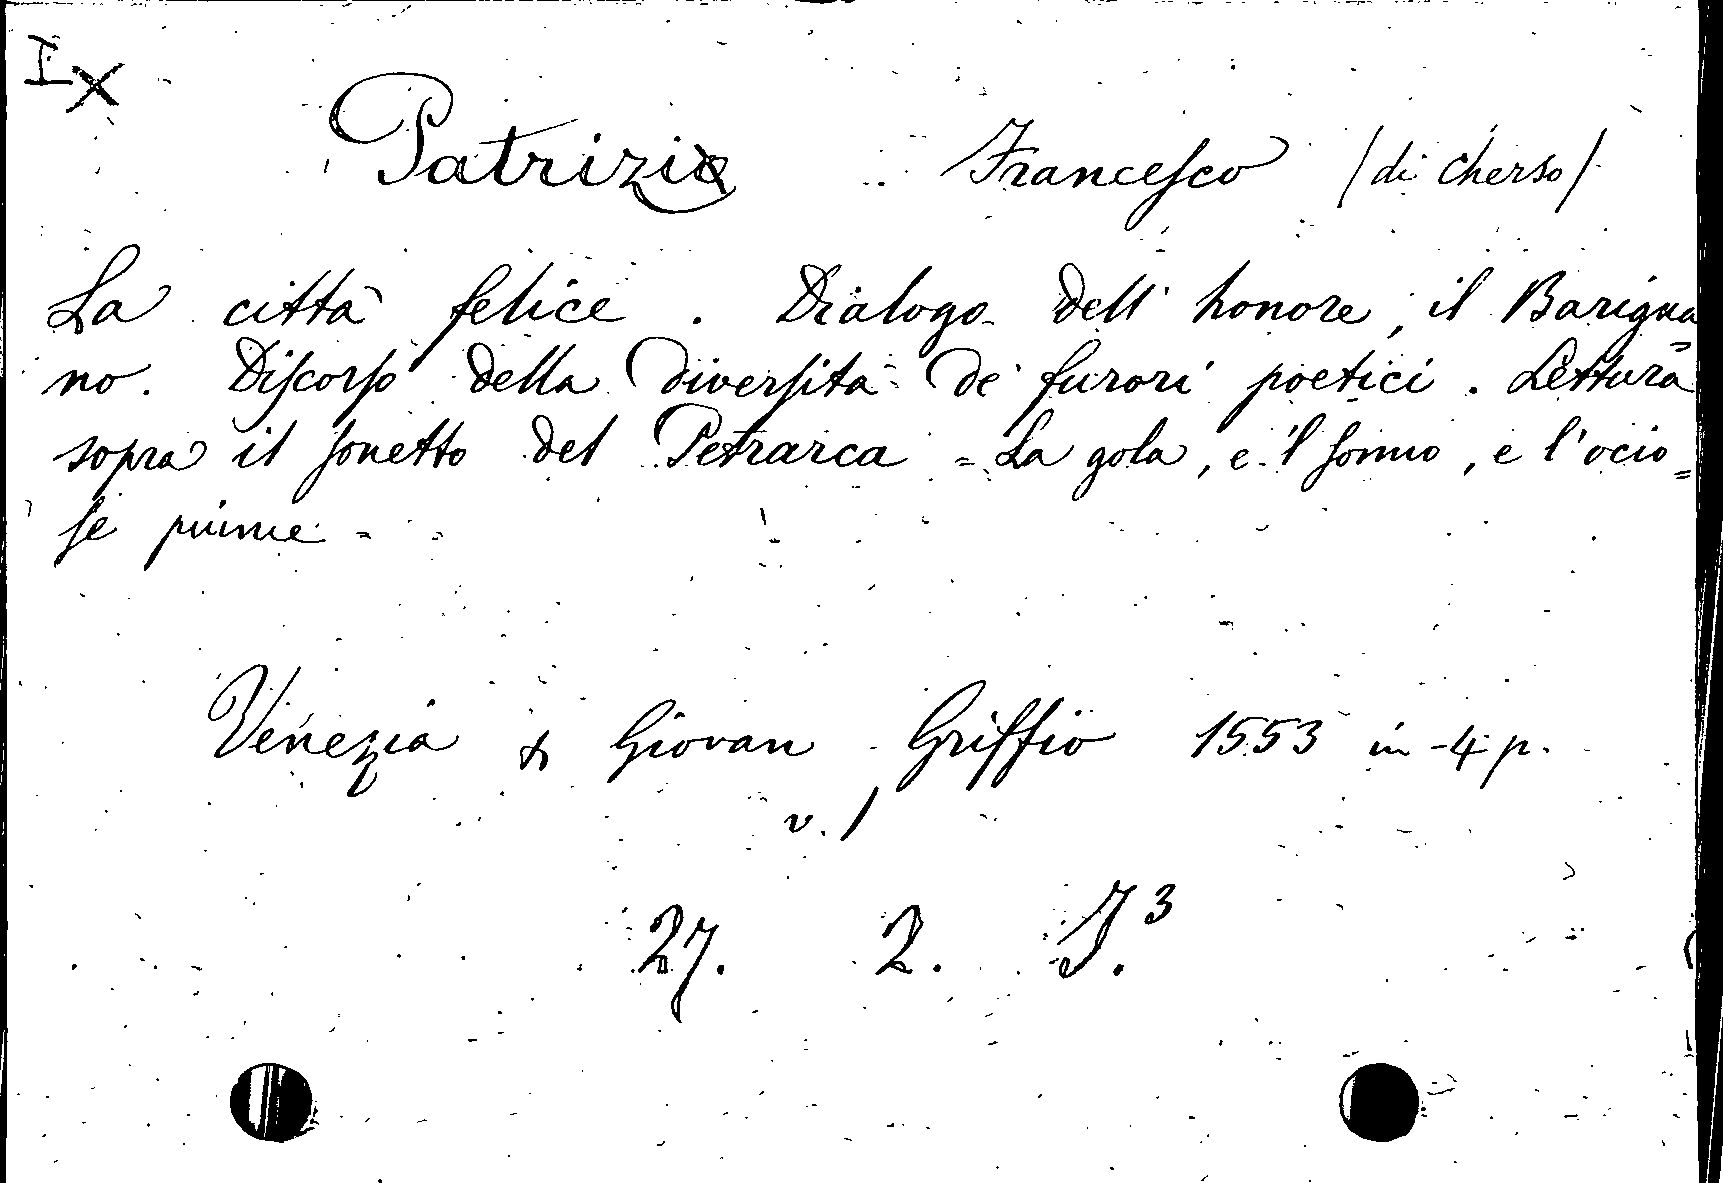 I X
Patrizio Francesco /di Cherso/
La città felice. Dialogo dell' honore, il Barigna=
no. Discorso della diversità de' furori poetici. Lettura
sopra il sonetto del Petrarca = La gola, e 'l sonno, e l'ocio=
se piume =
Venezia Giovan Griffio 1553 in-4 p.
v. 1
27. 2. J.3